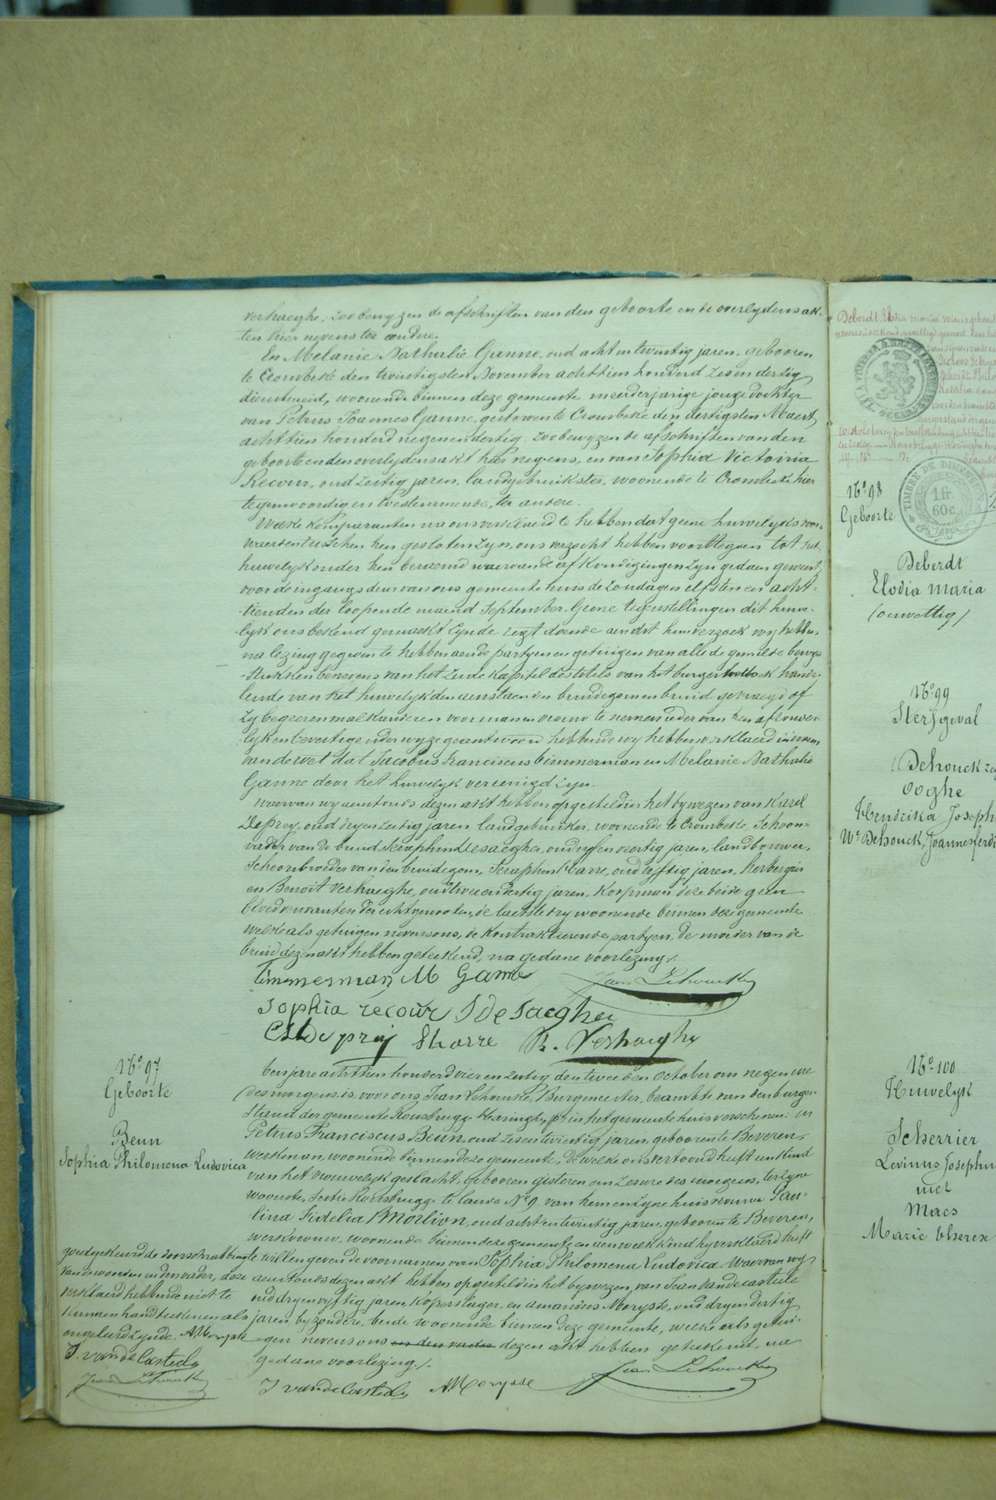 verhaeghe, zoo bewyzen de afschriften van den geboorte en de overlydensak-
ten hier nevens ten andere.
En Melanie Nathalie Ganne, oud acht en twintig jaren, geboren
te Crombeke den twintigsten November achttien honderd zes en dertig
dienstmeid, woonende binnen deze gemeente meerderjarige jonge dochter
van Petrus Joannes Ganne, gestorven te Crombeke den dertigsten Maert
achttien honderd negen en dertig, zoo bewyzen de afschriften van den
geboorte en den overlydensakt hier nevens, en van Sophia Victoria
Recour, oud zestig jaren, landgebruikster, woonende te Crombeke hier
tegenwoordig en toestemmende, ter andere.
Welke komparanten na ons verklaerd te hebben dat geene huwelyks voor-
waerden tusschen hen gesloten zyn, ons verzocht hebben voorttegaen tot het
huwelyk onder hen beraemd waervan de afkondigingen zyn gedaen geweest,
voor den ingangs deur van ons gemeente huis de zondagen elfsten en acht-
tienden der loopende maend September. Geene tegenstellingen dit huwe-
lyk ons bekend gemaekt zynde regt doende aen dit hun verzoek wy hebben,
na lezing gegeven te hebben aende partyen en getuigen van alle de gemelde bewys
stukken benevens van het zesde kapittel des titels van het burger wetboek hande-
lende van het huwelyk den aenstaenden bruidegom en bruid gevraegd of
zy begeeren malkanderen voor man en vrouw te nemen ieder van hen afzonder-
lyk en bevestigenderwyze geantwoord hebbende wy hebben verklaerd in naem
van de wet dat Jacobus Franciscus Timmerman en Melanie Nathalie
Ganne door het huwelyk vereenigd zyn.
Waervan wy aenstonds dezen akt hebben opgesteld in het bywezen van Karel
Deprey, oud dryenzestig jaren landgebruiker, woonende te Crombeke, schoon-
vader van de bruid Seraphin Desaegher, oud vyf en veertig jaren, landbouwer,
schoonbroeder van den bruidegom, Seraphin Sharre, oud vyftig jaren, herbergier
en Benoit Verhaeghe, oud twee en dertig jaren, koopman deze beide geen
bloedverwanten der echtgenooten, de laetste dry woonende binnen deze gemeente
welke als getuigen nevens ons, de kontrakteerende partyen, de moeder van de
bruid dezen akt hebben geteekend, na gedane voorlezing.
Timmerman M Ganne Jean Lehouck
Sophia recour S de Saegher
CL Deprey Sharre B. Verhaeghe
N.o 97
Geboorte
Beun
Sophia Philomena Ludovica
Ten jare achttien honderd vier en zestig den tweeden October om negen ure
des morgens is voor ons Jean Lehouck, Burgemeester, beambte van den burger-
stand der gemeente Rousbrugge Haringhe, in het gemeente huis verschenen
Petrus Franciscus Beun, oud zes en twintig jaren, geboren te Beveren,
werkman, woonende binnen deze gemeente, de welke ons vertoond heeft een kind
van het vrouwelyk geslacht, geboren gisteren om zes ure des morgens, ter zyne
woonste, sectie Rousbrugge te lande N.o 9 van hem en zyne huisvrouw Pau-
lina Fidelia Morlion, oud acht en twintig jaren, geboren te Beveren,
werkvrouw, woonende binnen deze gemeente en aen welk kind hy verklaerd heeft
te willen geven de voornamen van Sophia Philomena Ludovica. Waervan wy
aenstonds dezen akt hebben opgesteld in het bywezen van Jean Vandecasteele
oud dry en vyftig jaren koperslager en Amandus Moryste, oud dry en dertig
jaren, byzondere, beide woonende binnen deze gemeente, welke als getui-
gen nevens ons en den vader dezen akt hebben geteekend, na
gedane voorlezing.
J vandeCasteele AMoryste Jean Lehouck
goedgekeurd de doorschrabbing
van de woorden en den vader, deze
verklaerd hebbende niet te
kunnen handteekenen als
ongeleerd zynde. AMoryste
J. vandeCasteele
Jean Lehouck
Deberdt
TIMBRE DE DIMENSION
1 fr.
60c.
N.o 98
Geboorte
Deberdt
Elodia Maria
(onwettig)
N.o 99
Sterfgeval
Dehouck
Ooghe
Hendrika Joseph
W.e Dehouck, Joannes ferdi
N.o 100
Huwelyk
Scherrier
Levinus Josephu
met
Maes
Marie theres